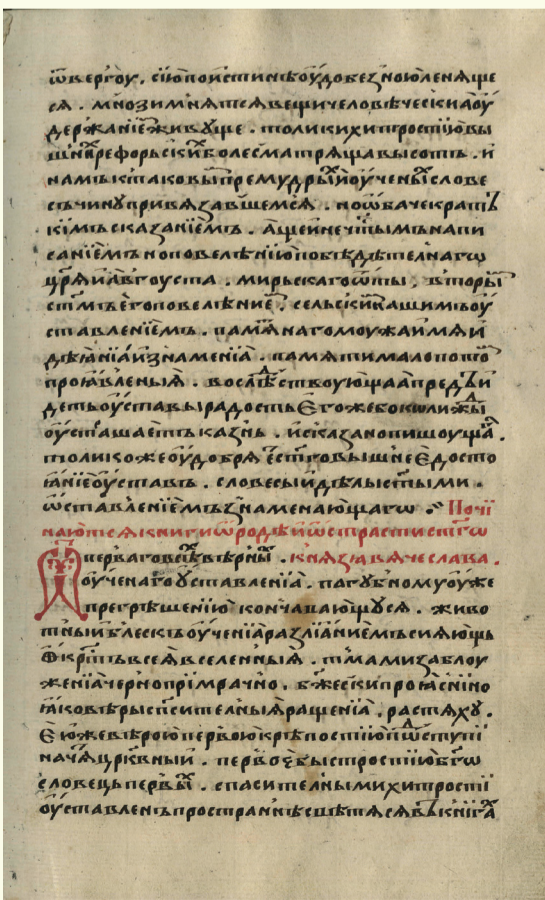 ѿвергоу. сїю поистинѣ оудобезною ленѧще
сѧ. мнози мнѧтсѧ вещи человѣческиꙗ оу
держанїе живꙋще. толики хитростїю вы
намъ к таковы премꙋдры и оучены слове
съ чинꙋ привѧзавшемсѧ. но ѡбаче кратъ
кимъ сказанїемъ. аще и нечтымъ напи
санїемъ но повелѣнїю побѣдѣтелнаго
црѧ и авгоуста. мирьскаго ѿты, вторы
стмъ его повелѣнїе, сельски кашимъ оу
ставленїемъ. памѧ на того моужа имѧ и
дѣꙗнїа и знаменїа. памѧти мало пото
проꙗвленыꙗ. вослѣствоующа ꙗ предъи
детъ оуставы радость его же бо коли жды
оусташаетъ казнь. и сказано пишоуща.
толико же оудобрѧ естовы шне едосто
ꙗнїе оуставъ. словесы и дѣлы стыми.
ѡставленїемъ знаменающаго. Почї
наютсѧ книги ѿ родѣ и ѿ страсти стго
перваго въ вѣрны. кнѧзѧ вѧчеслава.
оученаго уставленїа. пагꙋбномꙋ оуже
прегрѣшенїю кончавающꙋсѧ. живо
тныи блескъ оученїа разлїанїемъ сиꙗющь
ѡкртъ всеꙗ вселенныꙗ. тмами заблоу
женїа черно прїмрачно. бжески проꙗснїно
ꙗко вѣры спсителныꙗ ращенїа. растѧхꙋ.
Ею же вѣрою первою крѣпостїю пѿстꙋпї
нача црквныи. первое быстростїю бго
словець первы. спасителными хитростї
оуставленъ пространнѣ сшѣтѧсѧ въ книга